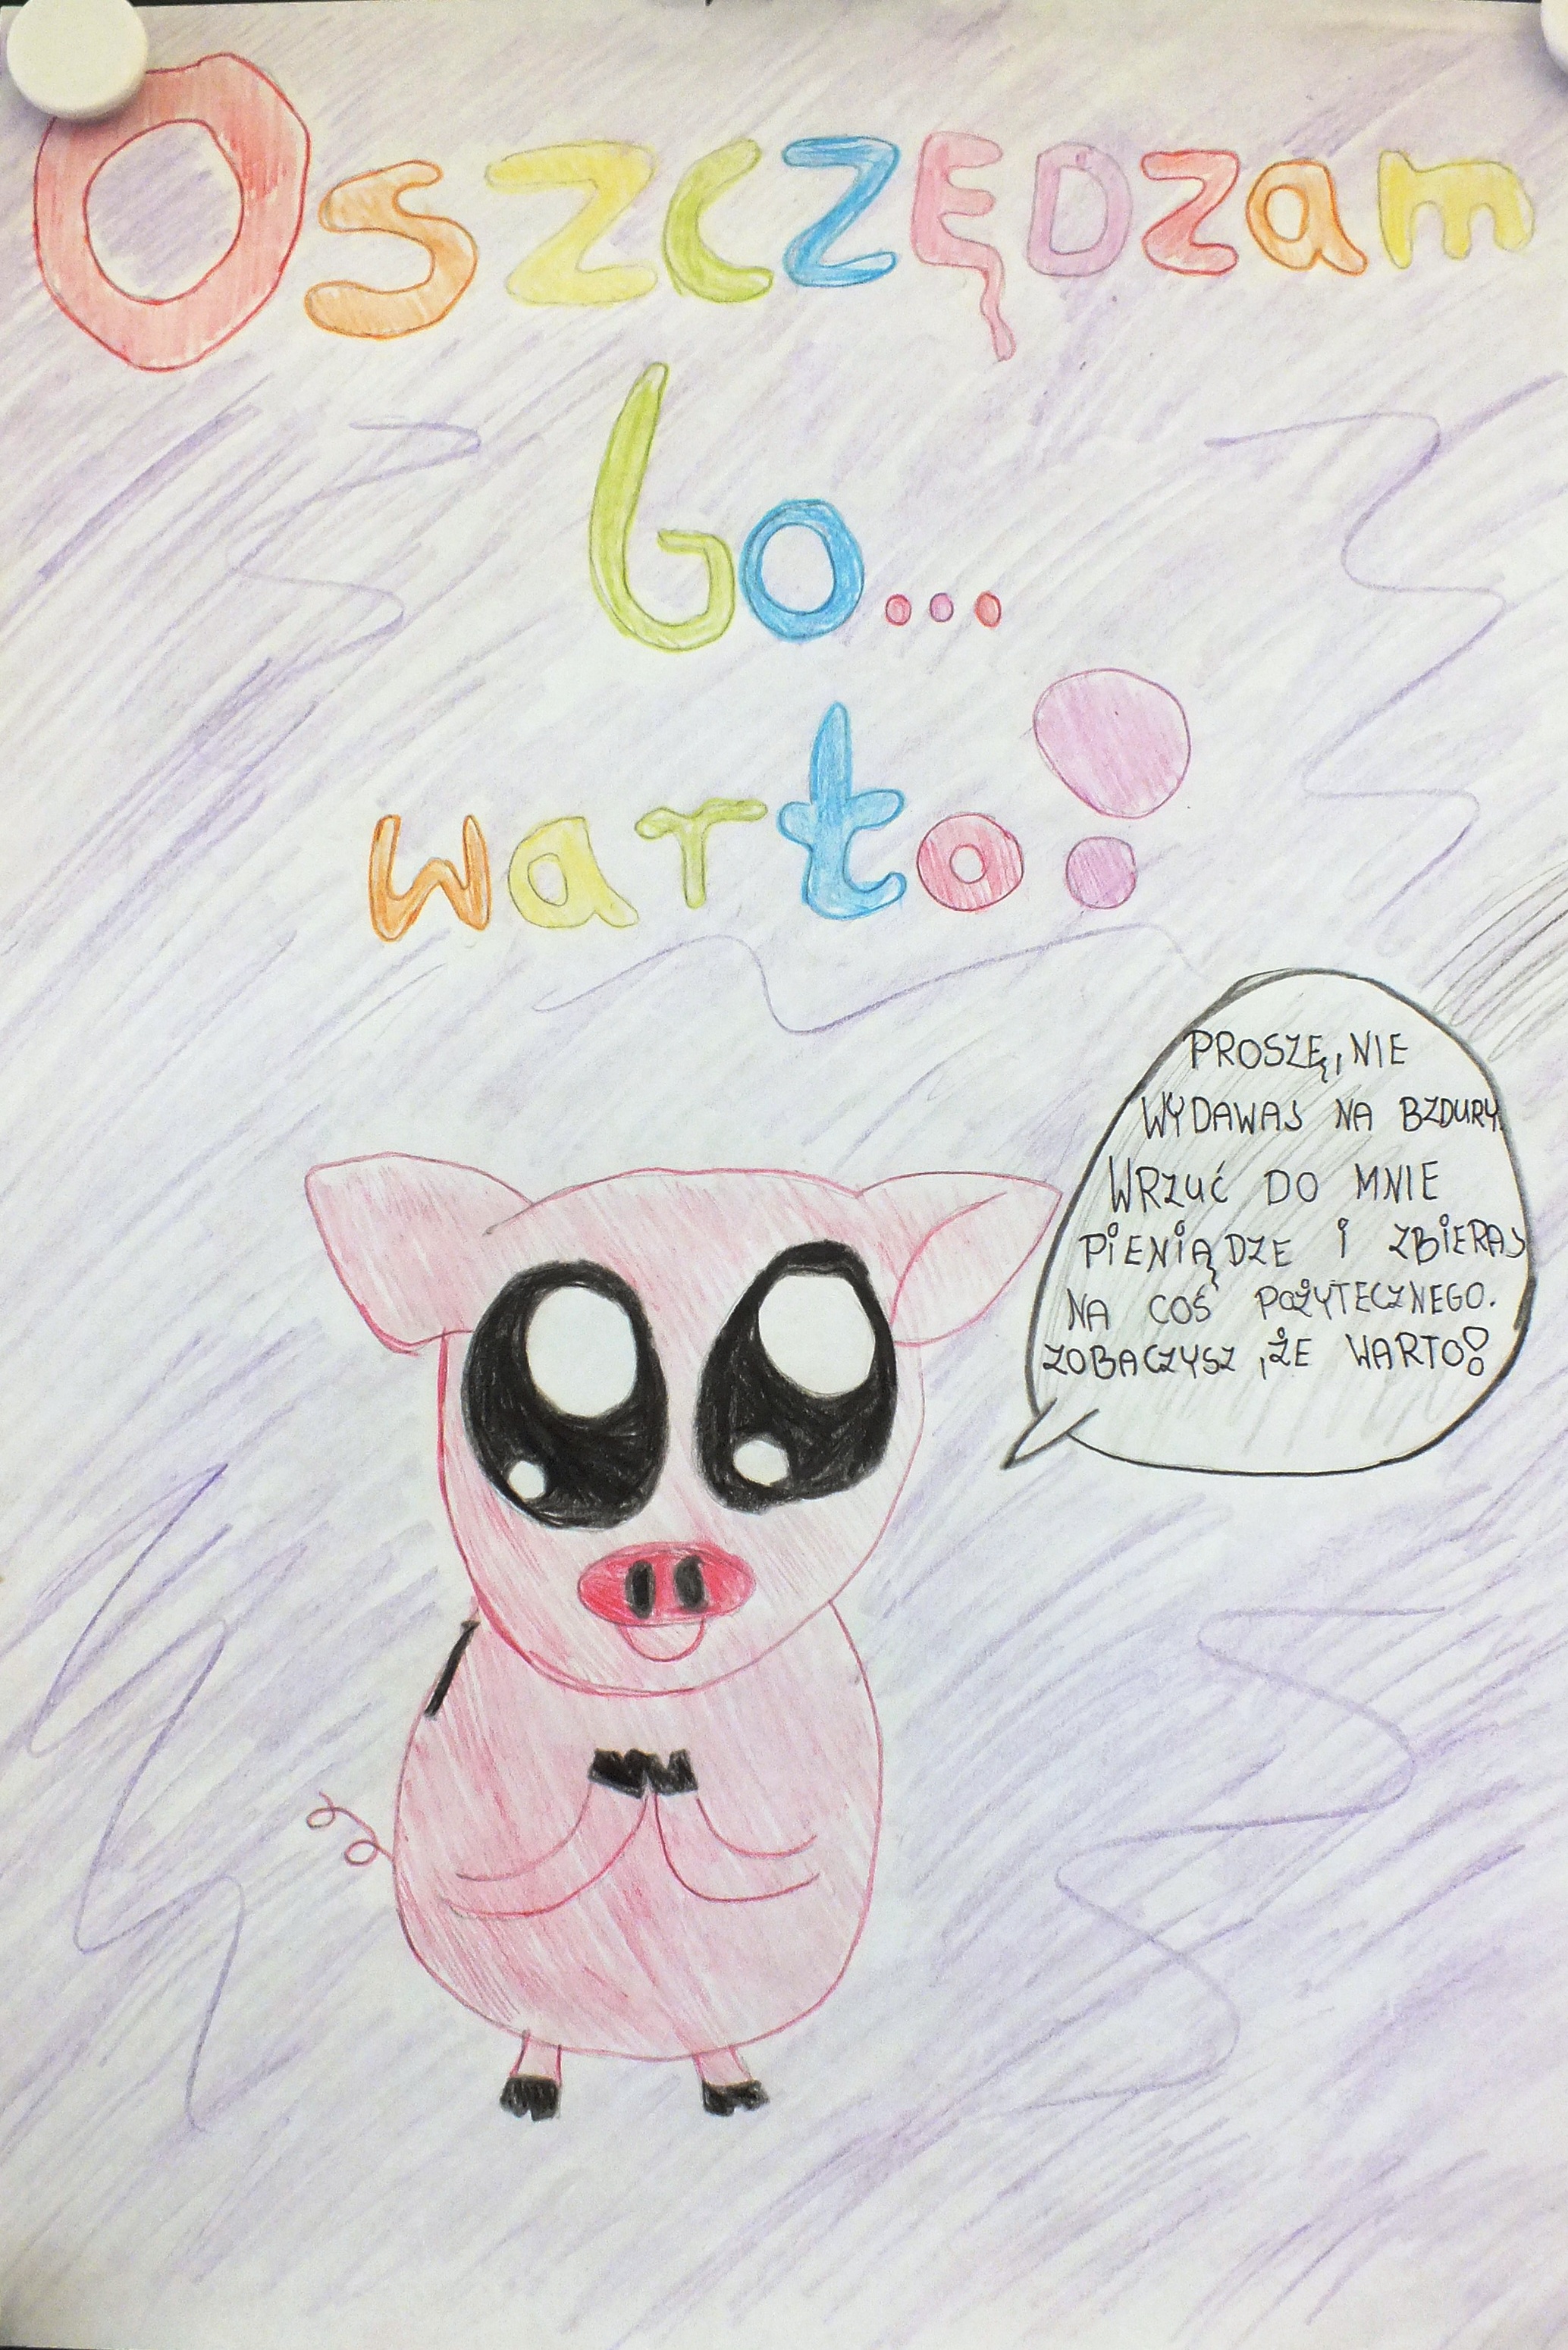 Oszczędzam
bo...
warto!
PROSZĘ, NIE
WYDAWAJ NA BZDURY.
WRZUĆ DO MNIE
PIENIĄDZE I ZBIERAJ
NA COŚ POŻYTECZNEGO.
ZOBACZYSZ, ŻE WARTO!